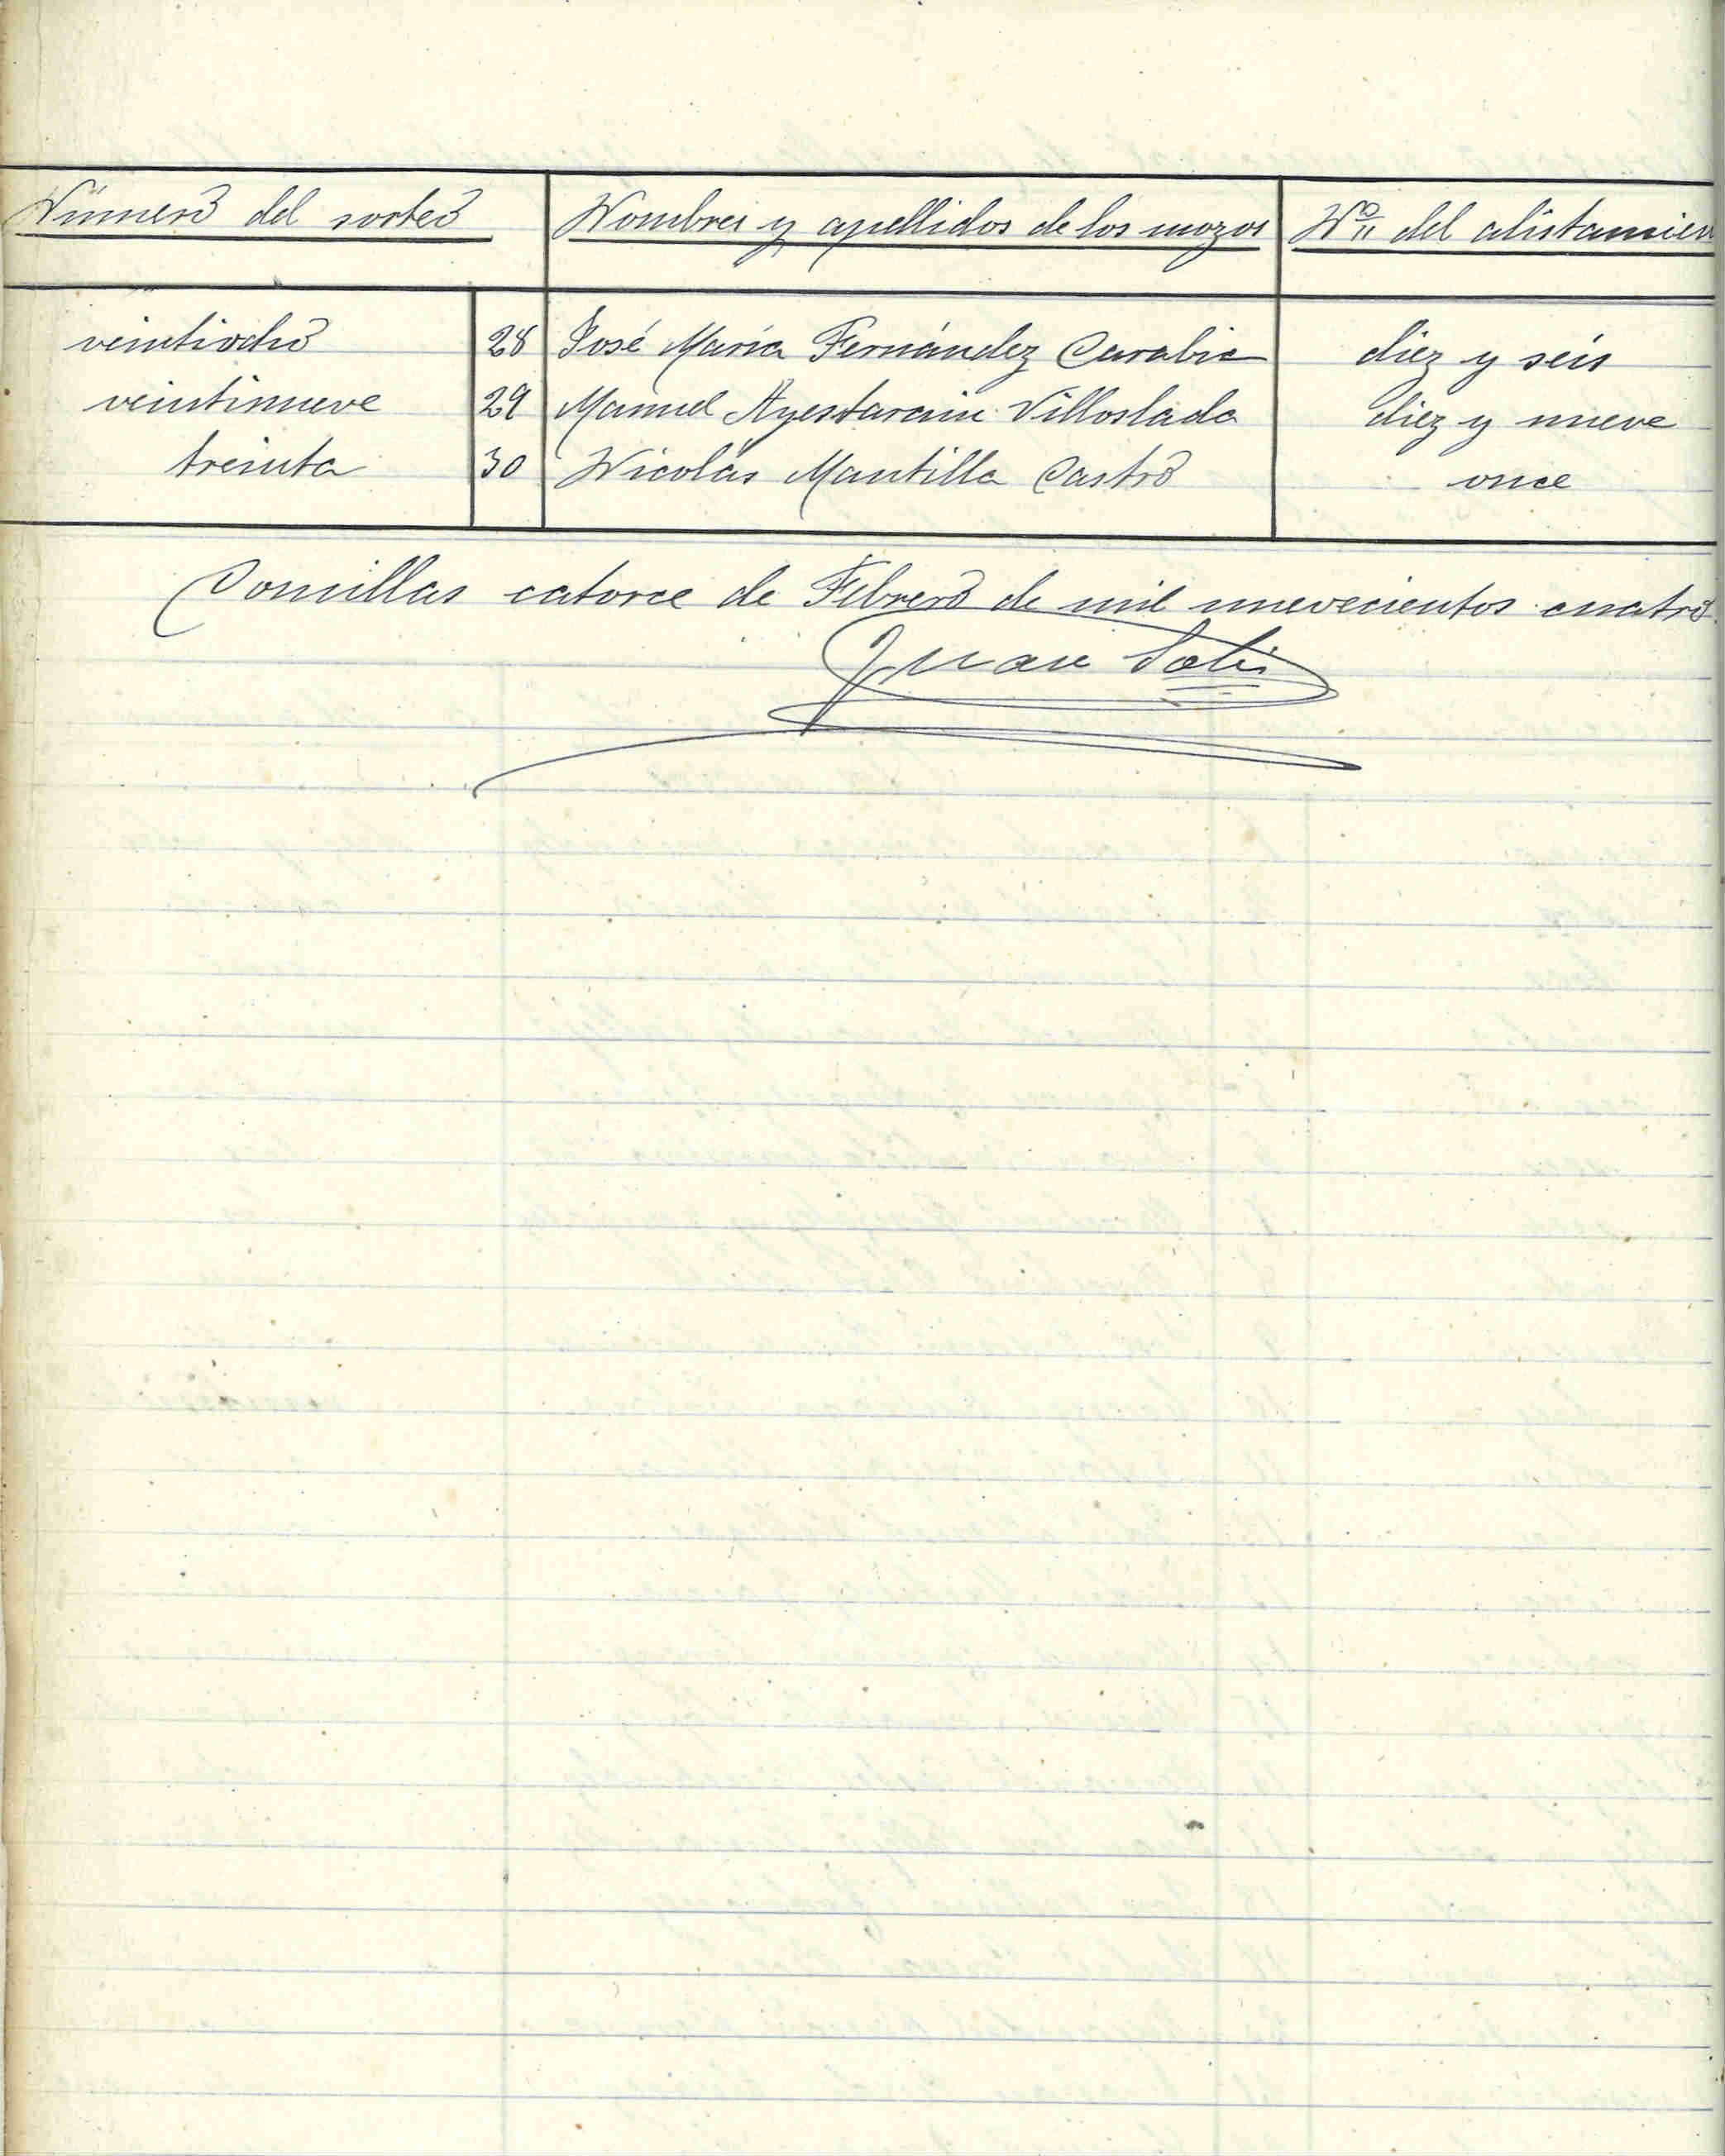 Número del sorteo Nombres y apellidos de los mozos Nº del alistamien
veintiocho 28 José María Fernández Carabia diez y seis
veintinueve 29 Manuel Ayestarain Villoslada diez y nueve
treinta 30 Nicolás Mantilla Castro once
Comillas catorce de Febrero de mil nuevecientos cuatro.
Juan Solis